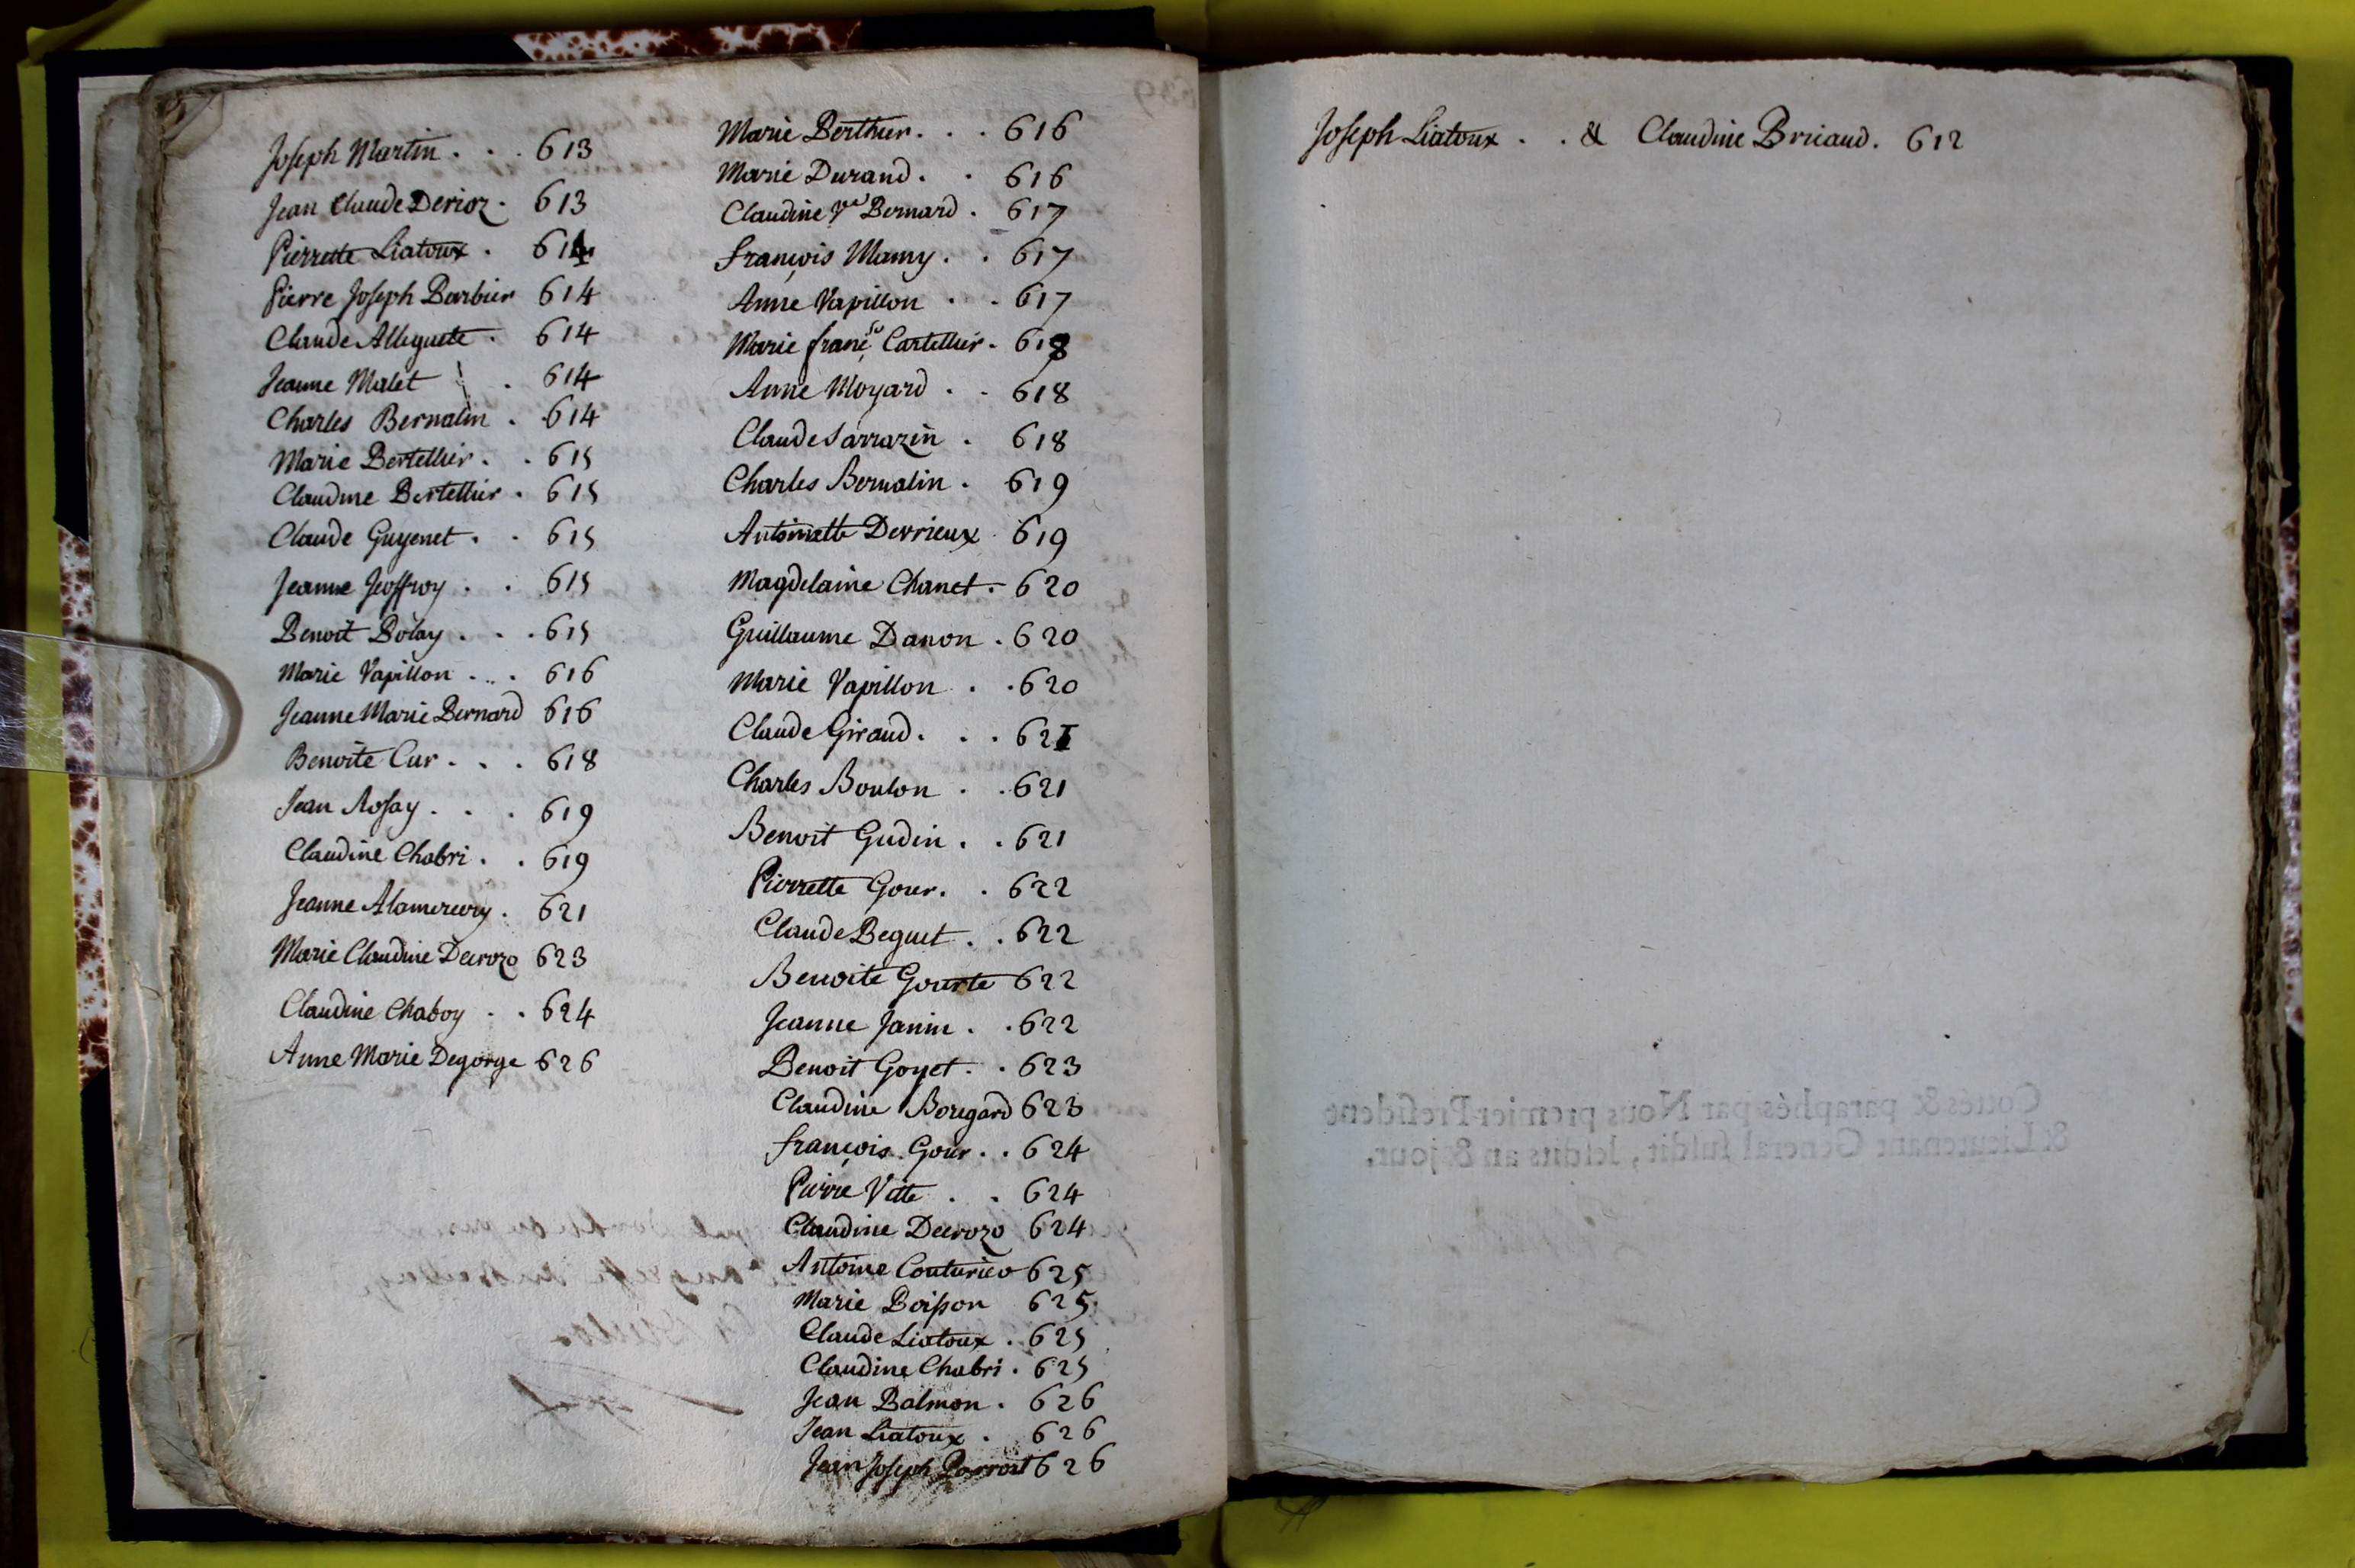 Joseph Martin . . . 613
Jean Claude Derioz . 613
Pierrette Liatoux . 614
Pierre Joseph Barbier 614
Claude Alleguete . 614
Jeanne Malet . 614
Charles Bernalin . 614
Marie Bertellier . . 615
Claudine Bertellier . 615
Claude Guyenet . . 615
Jeanne Jeoffroy . . 615
Benoit Bolay . . . 615
Marie Vapillon . . . 616
Jeanne Marie Bernard 616
Benoite Cur . . . 618
Jean Rosay . . . 619
Claudine Chabri . . 619
Jeanne Alamercery . 621
Marie Claudine Decrozo 623
Claudine Chaboy . . 624
Anne Marie Degorge 626
Marie Berthier . . . 616
Marie Durand . . 616
Claudine Ve Bernard . 617
François Mamy . . 617
Anne Vapillon . . 617
Marie françse Cartellier . 618
Anne Moyard . . 618
Claude Sarrazin . 618
Charles Bernalin . 619
Antoinette Derrieux 619
Magdelaine Chanet . 620
Guillaume Danon . 620
Marie Vapillon . . 620
Claude Giraud . . . 621
Charles Boulon . . 621
Benoit Gudin . . 621
Pierrette Gour . . 622
Claude Beguet . . 622
Benoite Gourte 622
Jeanne Janin . . 622
Benoit Goyet . . 623
Claudine Boregard 623
françois Gour . . 624
Pierre Vitte . . 624
Claudine Decrozo 624
Antoine Couturier 625
Marie Boisson 625
Claude Liatoux . 625
Claudine Chabri . 625
Jean Balmon . 626
Jean Liatoux . 626
Jean Joseph 626
Joseph Liatoux . . & Claudine Briiaud . 612
Cottés & paraphés par Nous premier President
& Lieutenant General susdit, lesdits an & jour.